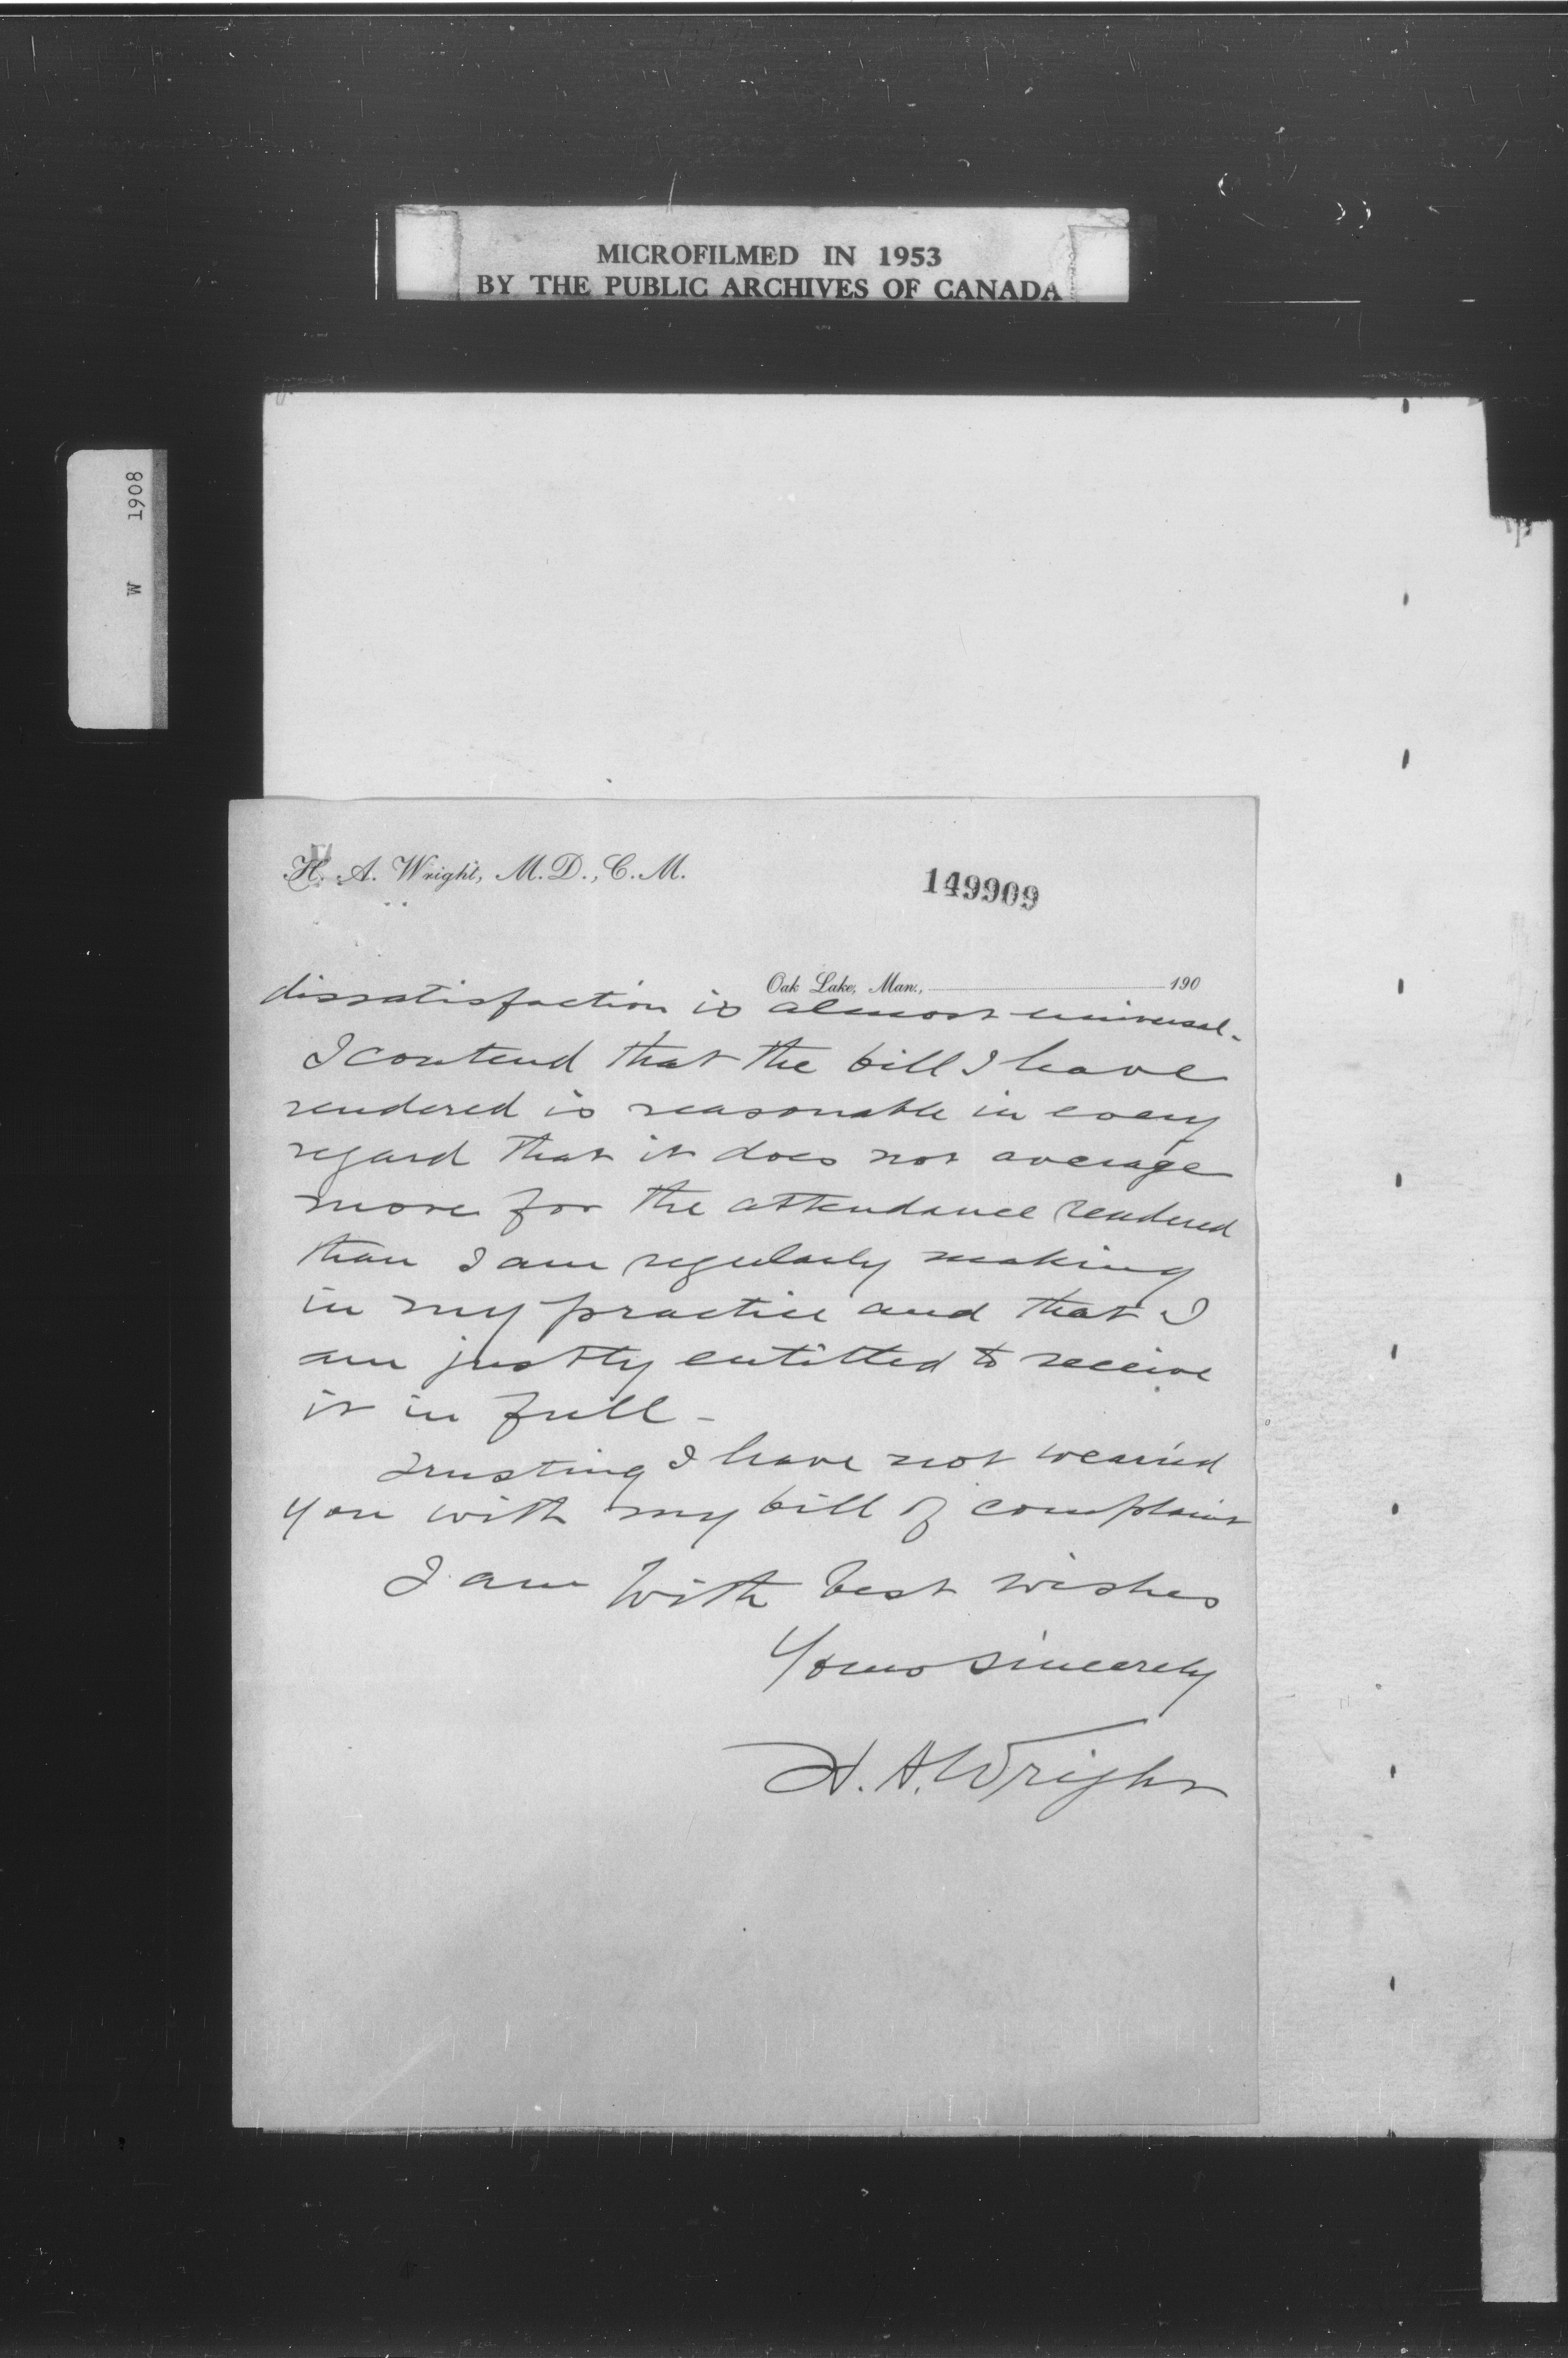 MICROFILMED IN 1953
BY THE PUBLIC ARCHIVES OF CANADA
W 1908
H. A. Wright, M.D., C.M.
149909
Oak Lake, Man., 190
dissatisfaction is almost universal.
I contend that the bill I have
rendered is reasonable in every
regard that it does not average
more for the attendance rendered
than I am regularly making
in my practice and that I
am justly entitled to receive
it in full -
Trusting I have not wearied
you with my bill of complaint
I am With best wishes
Yours sincerely
H. A. Wright